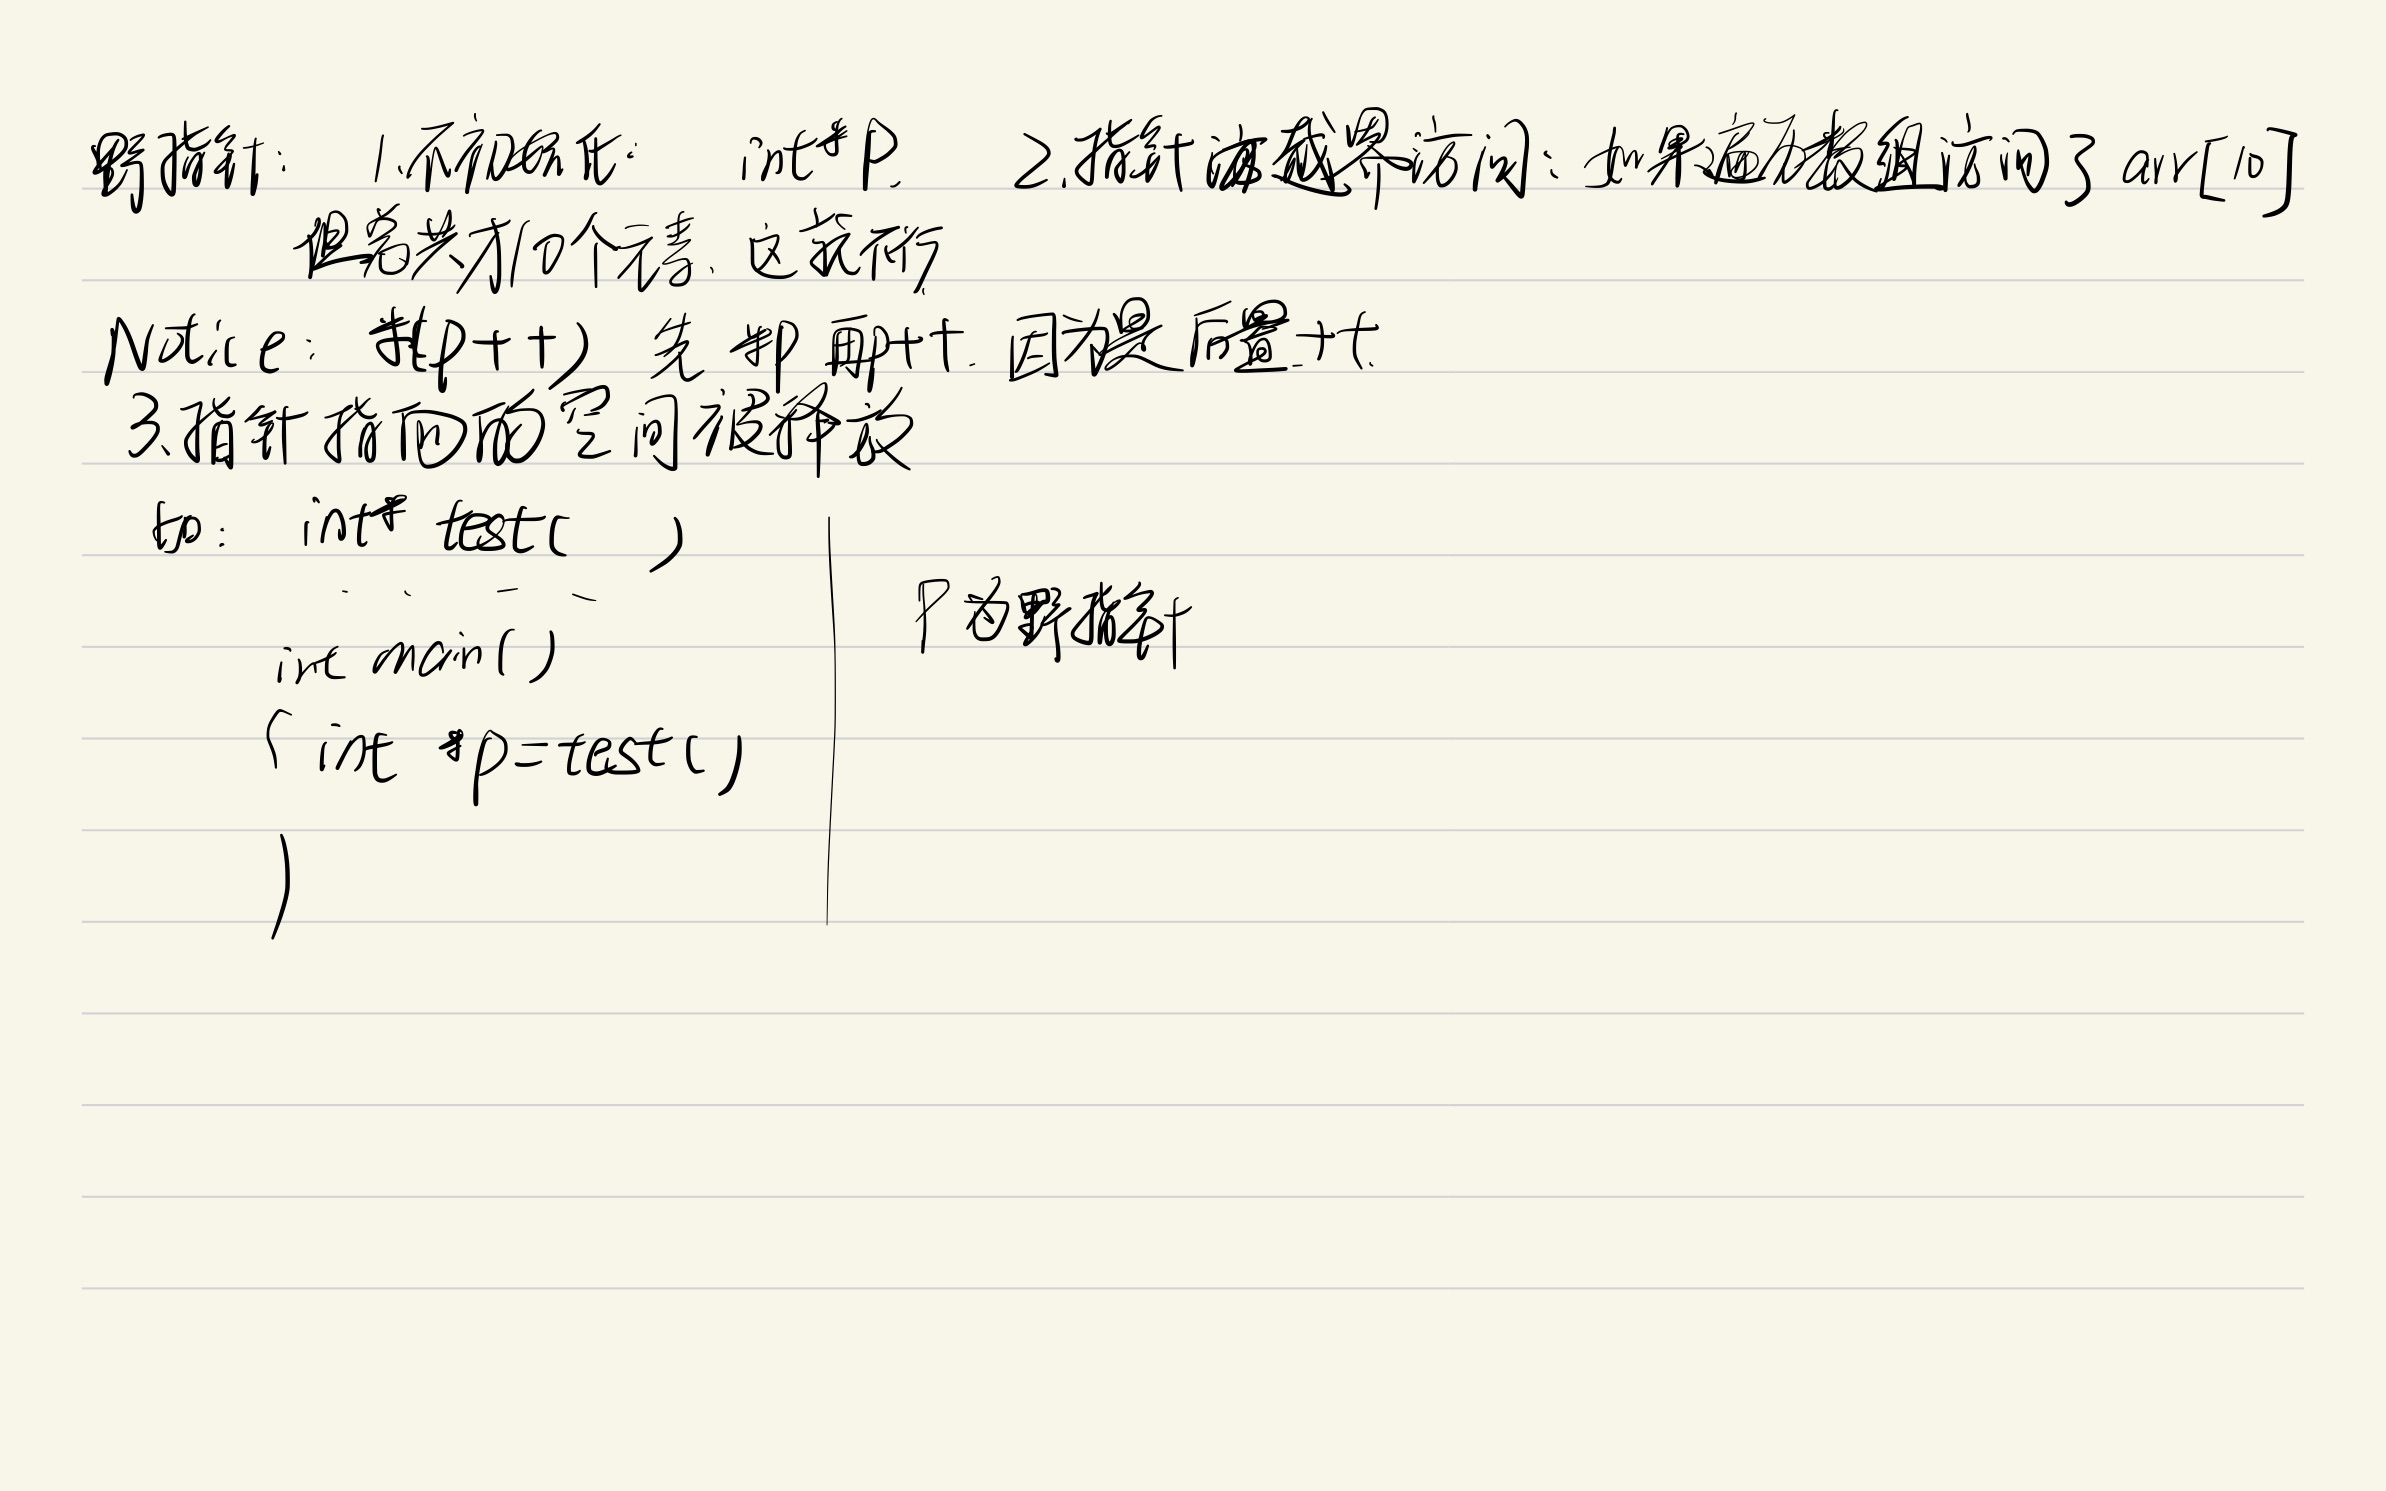 野指针: 1.不初始化: int*p. 2.指针越界访问: 如果遍历数组访问了arr[10]
但总共才10个元素.这就不行.
Notice: *(p++) 先*p再p++.因为是后置++.
3.指针指向的空间被释放
如: int* test( )
int main()
{ int *p=test()
P为野指针
}